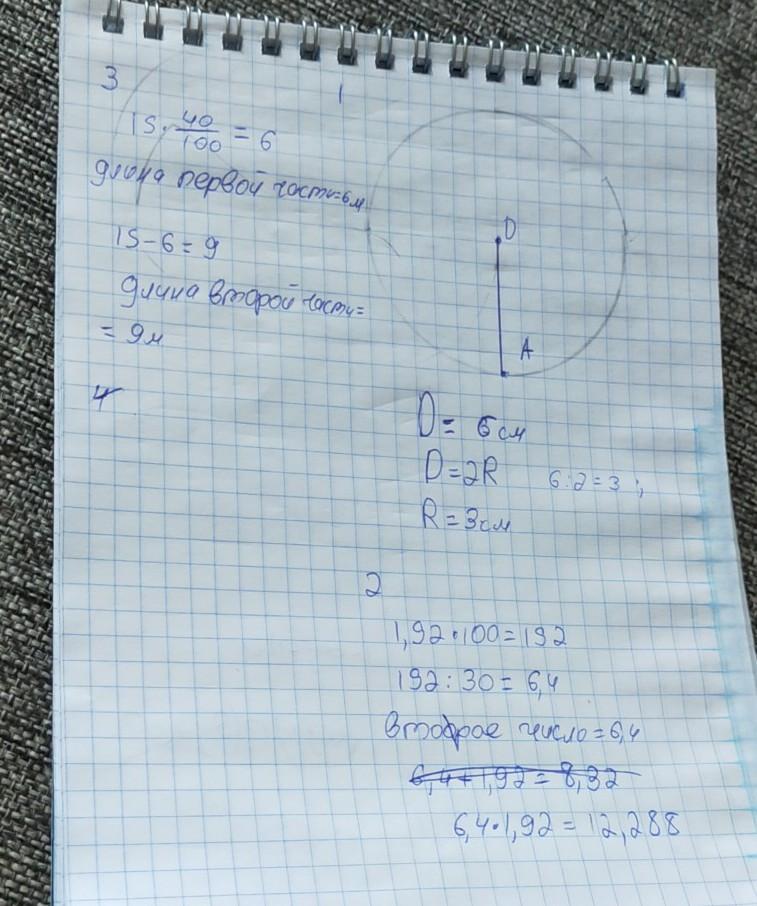 3
15 · 40/100 = 6
длина первой части=6м
15-6=9
длина второй части=
= 9м
4
1
D
A
D= 6см
D=2R 6:2=3;
R=3см
2
1,92·100=192
192:30=6,4
второе число=6,4
6,4+1,92=8,32
6,4·1,92=12,288